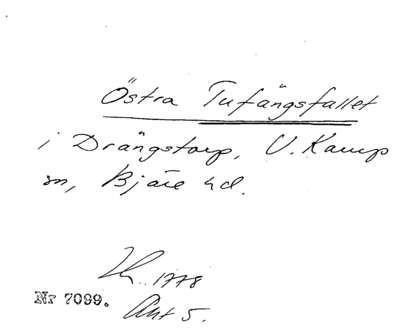 Östra Tufängsfallet
i Drängstorp, V. Karup
sn, Bjäre hd.
1778
Nr 7099.
Akt 5.